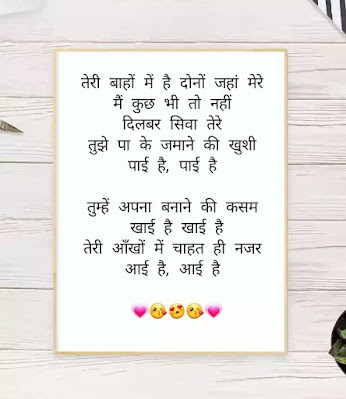 तेरी बाहों में है दोनों जहां मेरे
मैं कुछ भी तो नहीं
दिलबर सिवा तेरे
तुझे पा के जमाने की खुशी
पाई है, पाई है
तुम्हें अपना बनाने की कसम
खाई है खाई है
तेरी आँखों में चाहत ही नजर
आई है, आई है
💗😘😍😘💗